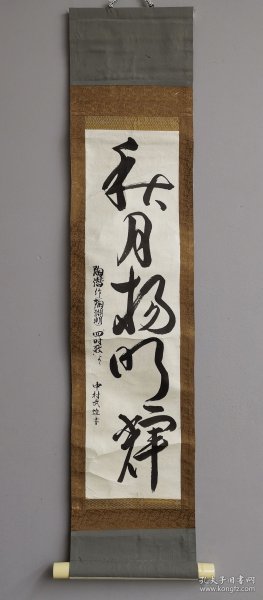 秋月揚明輝
陶潜作陶淵明四時歌
中村
孔夫子旧书网
www.kongfz.com